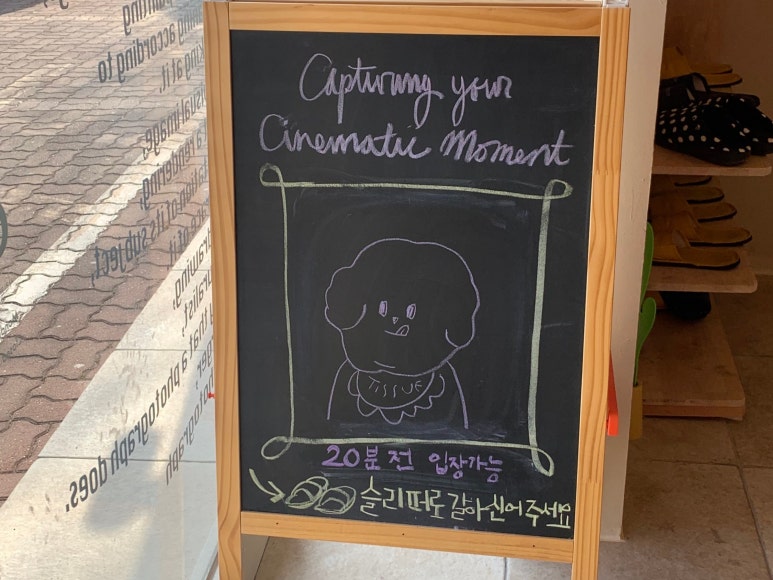 Capturing your
Cinematic Moment
TISSUE
20분 전 입장가능
슬리퍼로 갈아신어주세요
according to
all it.
visual image
a rendering,
its subject,
that, a photograph
photograph does.